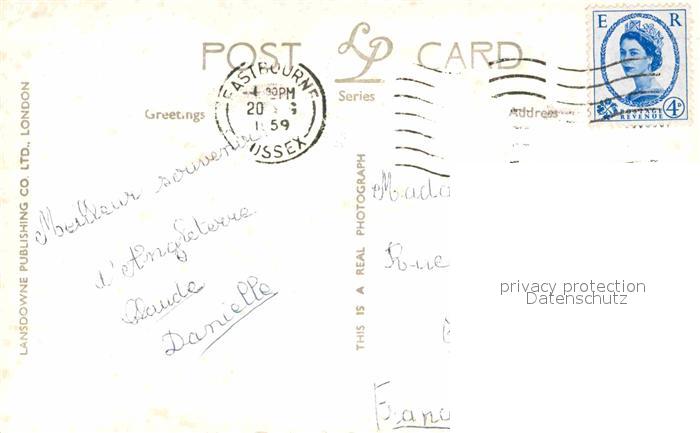 POST LP CARD
Series
E R
POSTAGE
REVENUE 4D
EASTBOURNE
PM
20
1959
SUSSEX
Greetings
Address
LANSDOWNE PUBLISHING CO LTD., LONDON
Meilleur souvenir
d'Angleterre
Claude
Danielle
THIS IS A REAL PHOTOGRAPH
Mada
Rue
Franc
privacy protection
Datenschutz